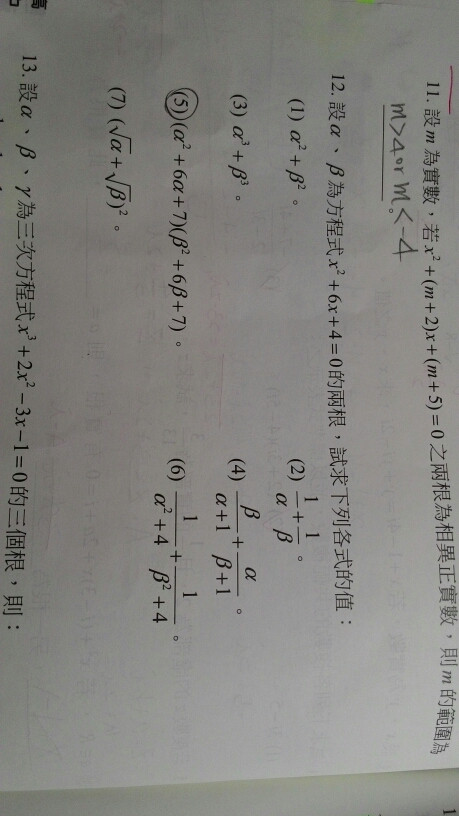 11. 設 m 為實數，若 x² + (m+2)x + (m+5) = 0 之兩根為相異正實數，則 m 的範圍為
m>4 or m<-4
。
12. 設 α、β 為方程式 x² + 6x + 4 = 0 的兩根，試求下列各式的值：
(1) α² + β²。 (2) 1/α + 1/β。
(3) α³ + β³。 (4) β/(α+1) + α/(β+1)。
(5) (α² + 6α + 7)(β² + 6β + 7)。 (6) 1/(α²+4) + 1/(β²+4)。
(7) (√α + √β)²。
13. 設 α、β、γ 為三次方程式 x³ + 2x² − 3x − 1 = 0 的三個根，則：